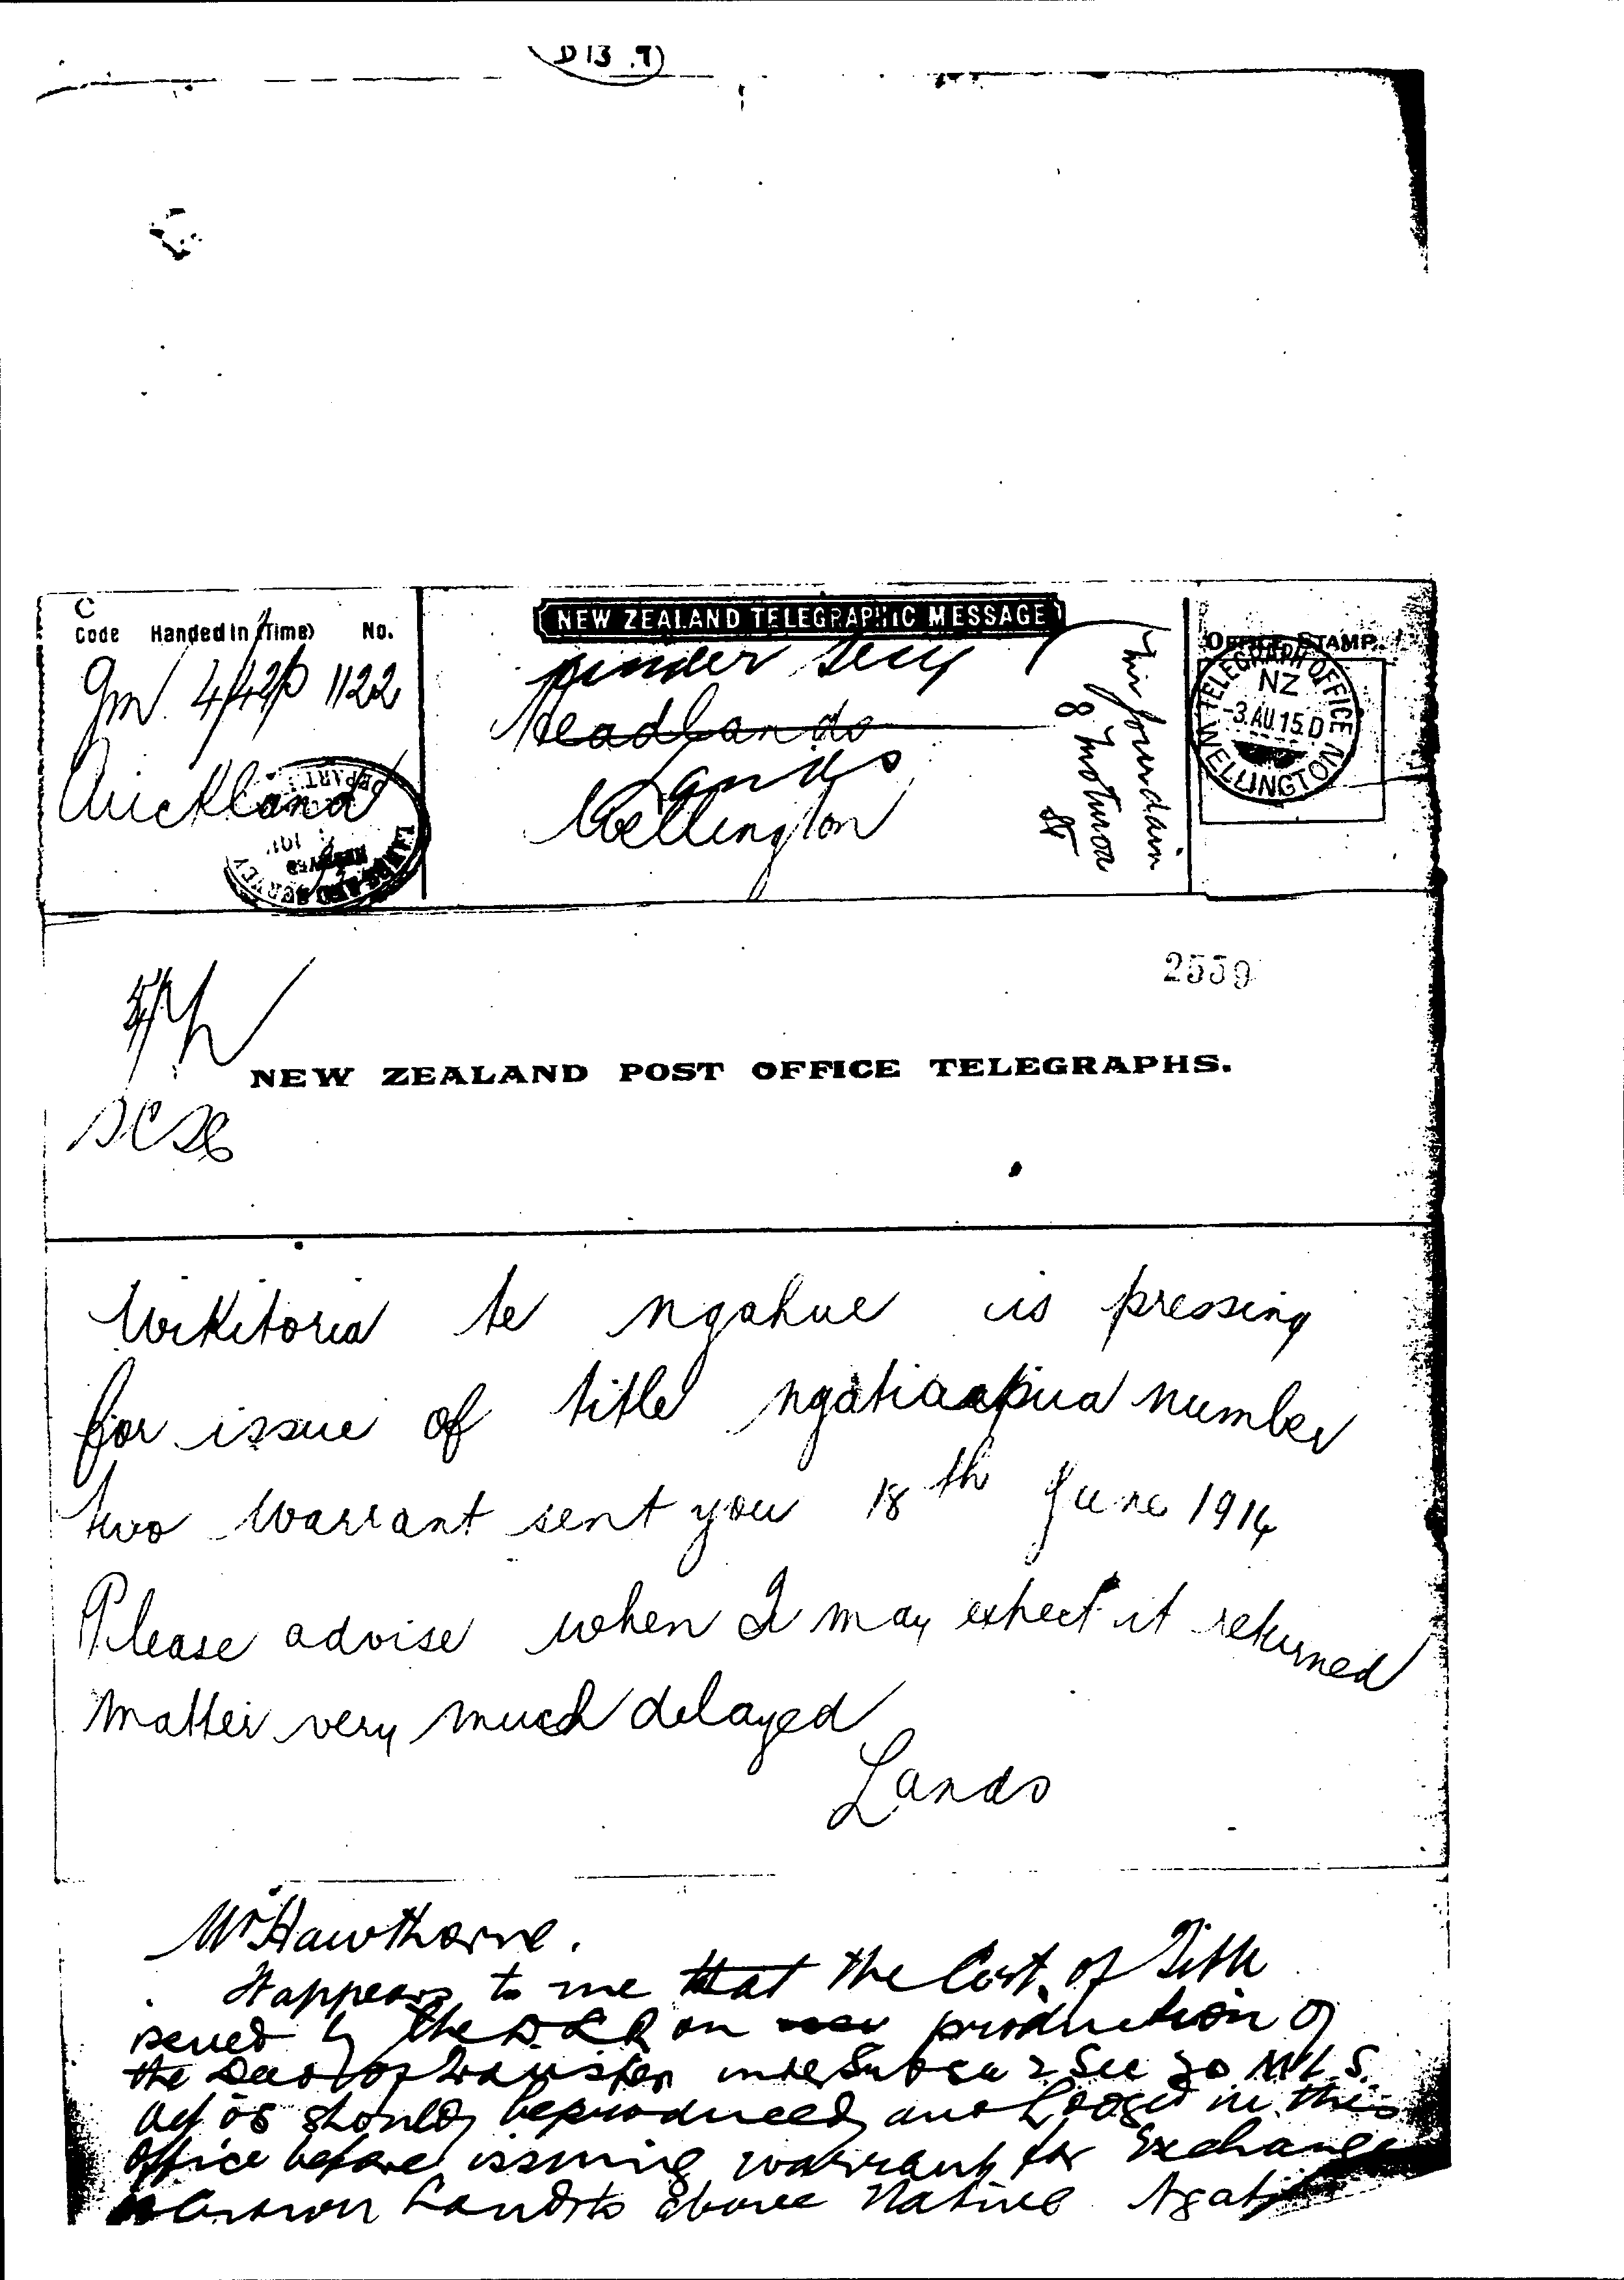 D13
C
Code Handed in (Time) No.
Gm 4/42p 1122
Auckland
NEW ZEALAND TELEGRAPHIC MESSAGE
under secy
Headlands
Lands
Wellington
8 Moturoa
St
OFFICE STAMP.
TELEGRAPH OFFICE
NZ
-3.AU 15.D
WELLINGTON
2559
NEW ZEALAND POST OFFICE TELEGRAPHS.
Wikitoria te ngahue is pressing
for issue of title ngatiaapua number
two warrant sent you 18th June 1914
Please advise when I may exhect it returned
Matter very much delayed
Lands
Mr Hawthorne.
It appears to me that the Cert. of Title
issued by the D.L.R on production of
the Deed of Transfer under Subsec 2 Sec 20 M.L.S.
Act 08 should be produced and Lodged in this
office before issuing warrant for Exchange
Crown Lands to above Native